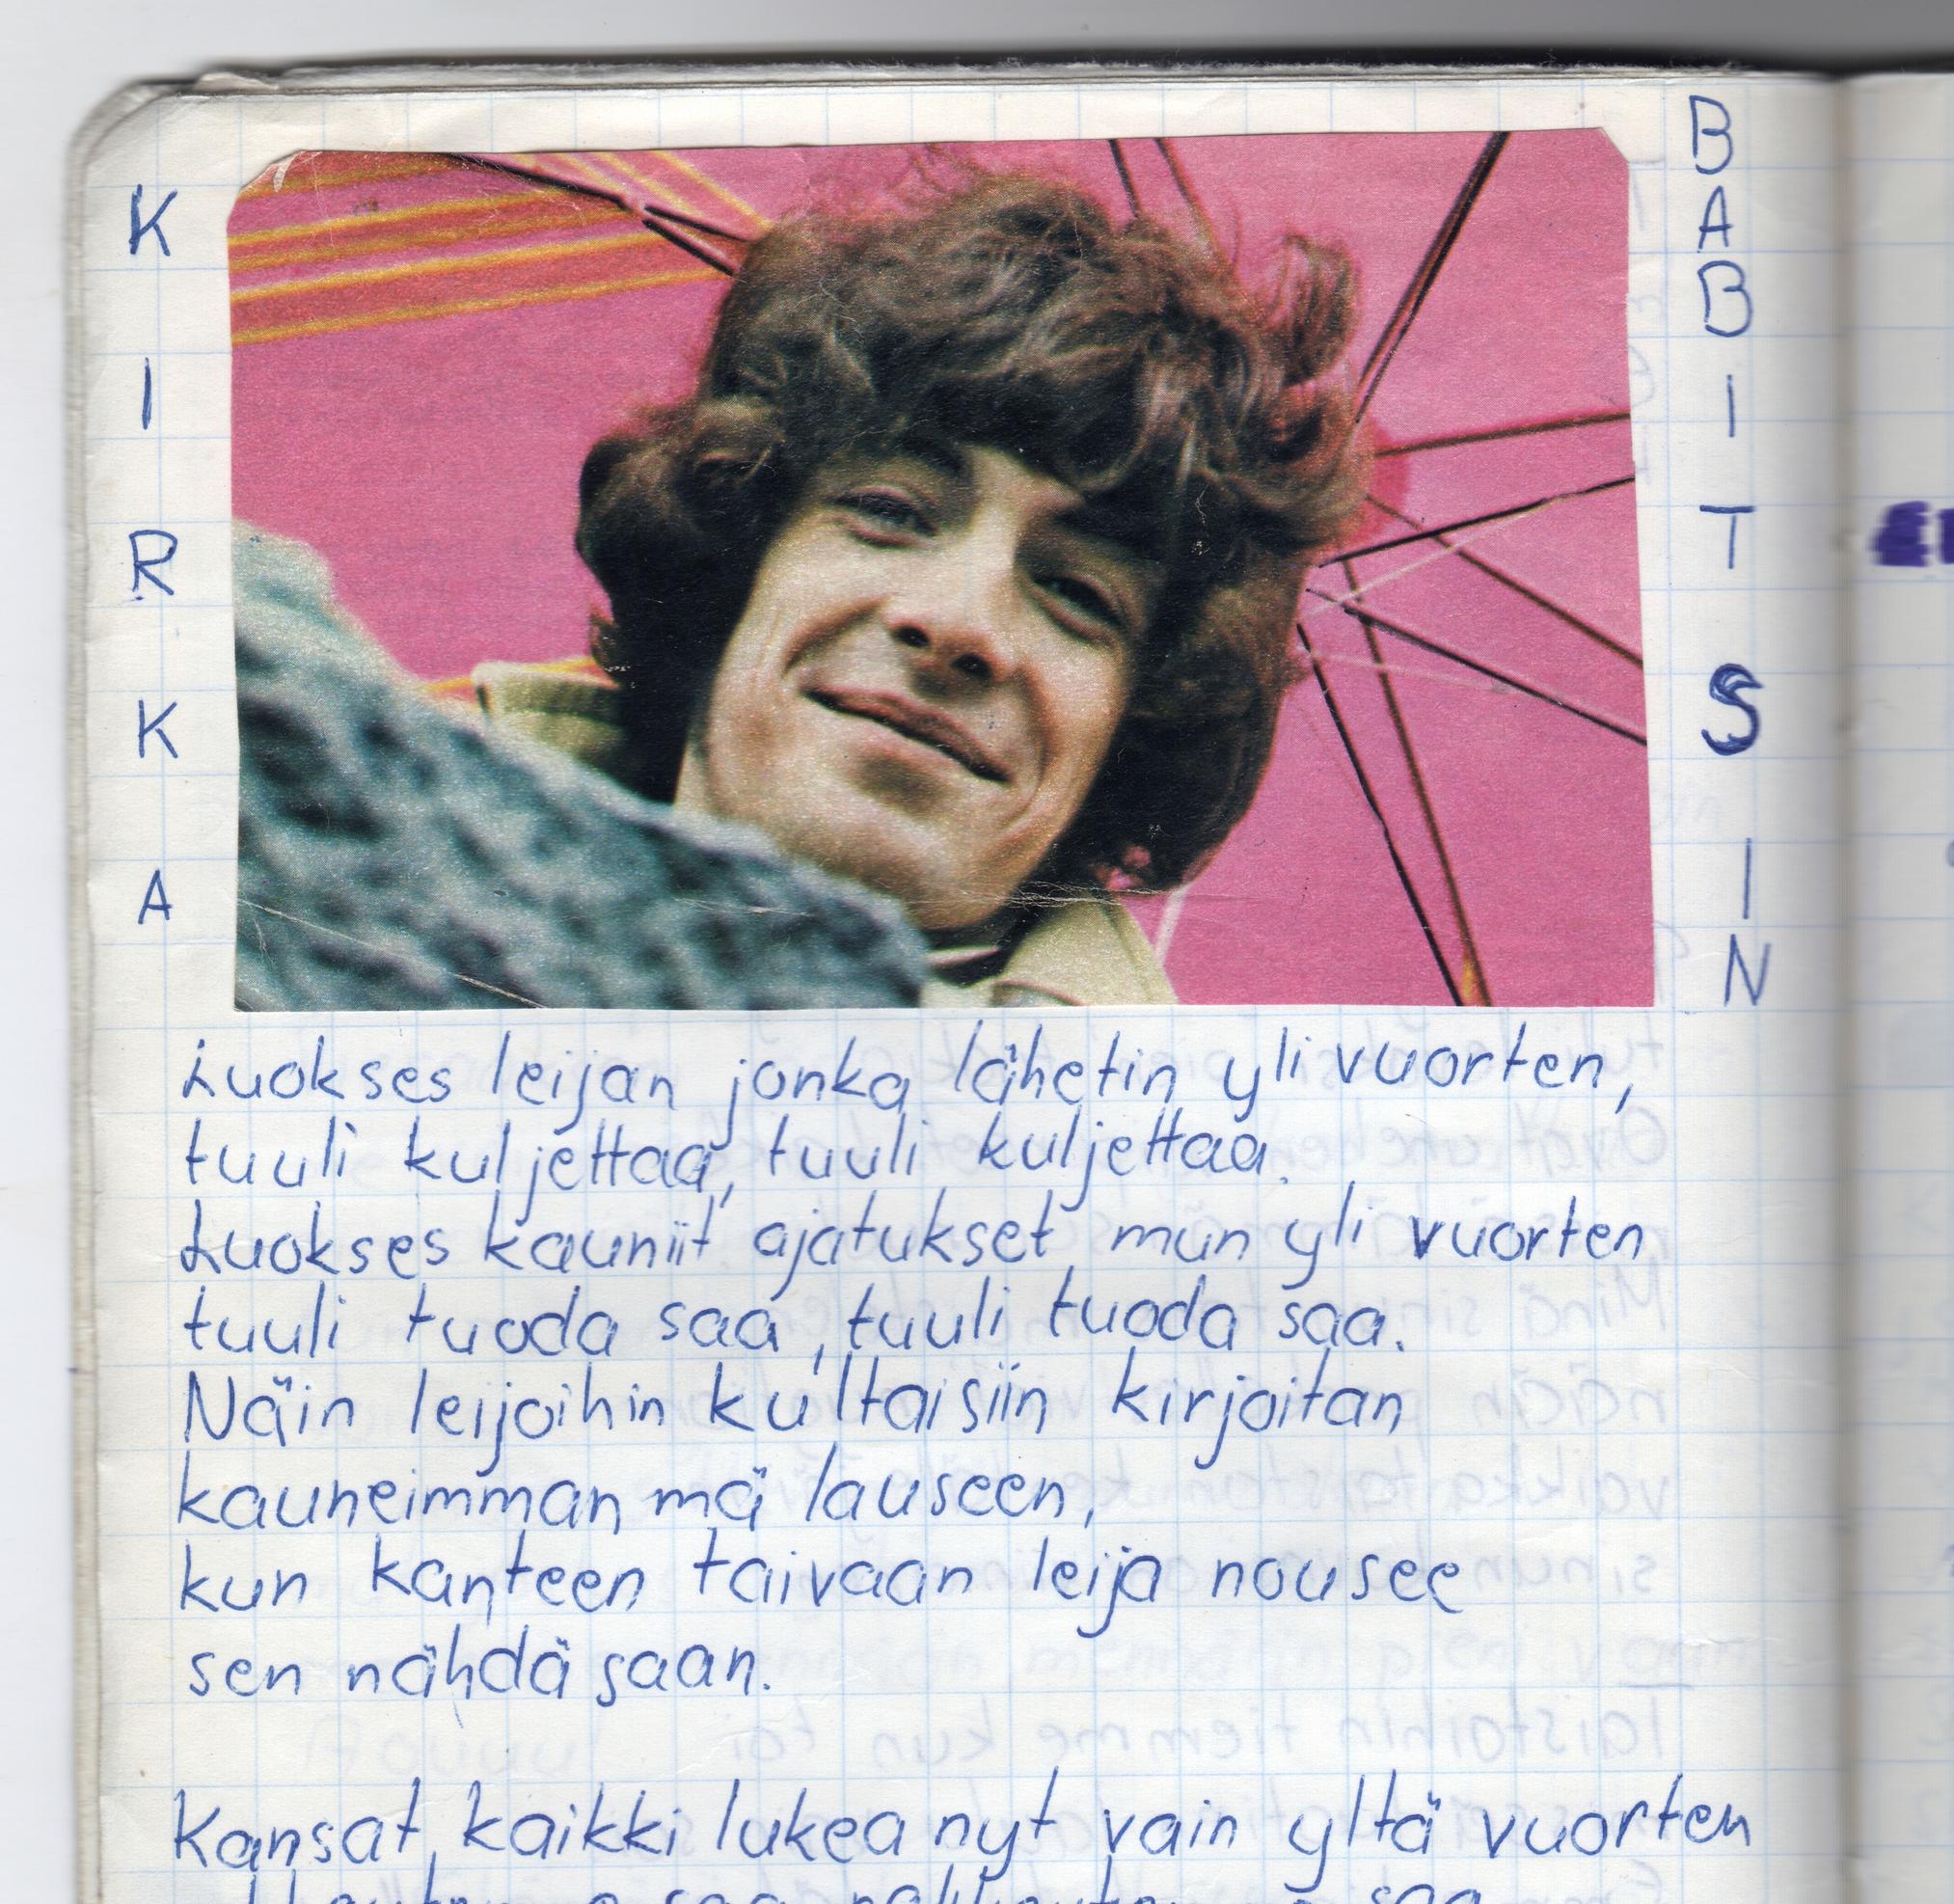 KIRKA
BABITSIN
Luokses leijan jonka lähetin yli vuorten,
tuuli kuljettaa, tuuli kuljettaa.
Luokses kauniit ajatukset mun yli vuorten
tuuli tuoda saa, tuuli tuoda saa.
Näin leijoihin kultaisiin kirjoitan
kauneimman mä lauseen,
kun kanteen taivaan leija nousee
sen nähdä saan.
Kansat kaikki lukea nyt vain yltä vuorten